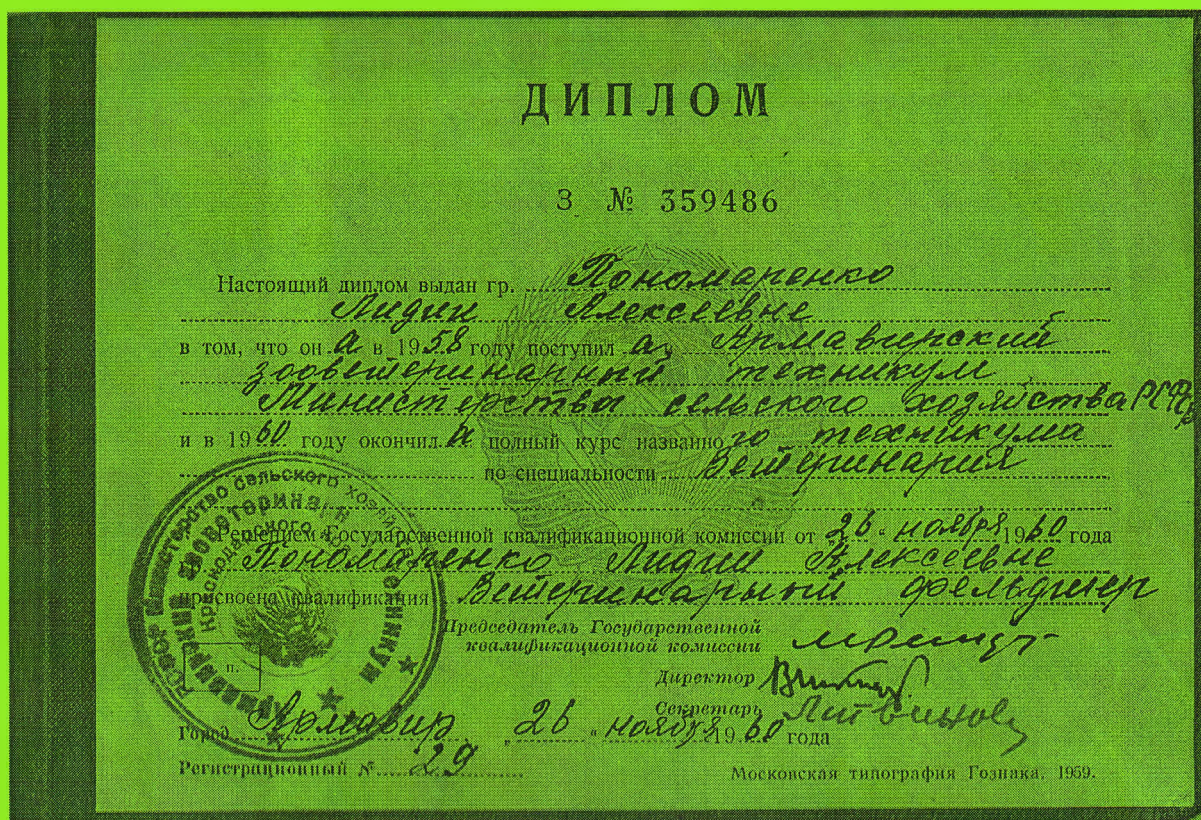 ДИПЛОМ
З № 359486
Настоящий диплом выдан гр. Пономаренко
Лидии Алексеевне
в том, что он а в 1958 году поступил а в Армавирский
зооветеринарный техникум
Министерства сельского хозяйства РСФСР
и в 1960 году окончил а полный курс названного техникума
по специальности Ветеринария
Решением Государственной квалификационной комиссии от 26 " ноября 1960 года
Пономаренко Лидии Алексеевне
присвоена квалификация Ветеринарный фельдшер
Председатель Государственной
квалификационной комиссии
Директор
Секретарь Литвинова
Город Армавир „ 26 " ноября 1960 года
Регистрационный № 29
Московская типография Гознака. 1959.
Министерство сельского хозяйства
Армавирский зооветеринарн техникум
Краснодарского
п.